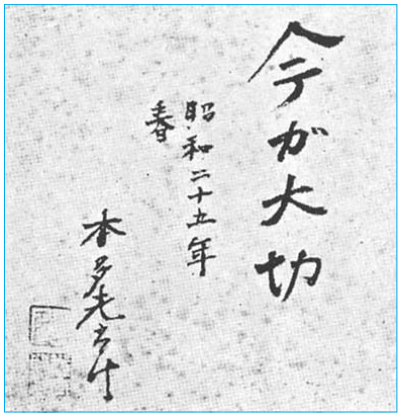 今が大切
昭和二十五年
春
本多光太郎